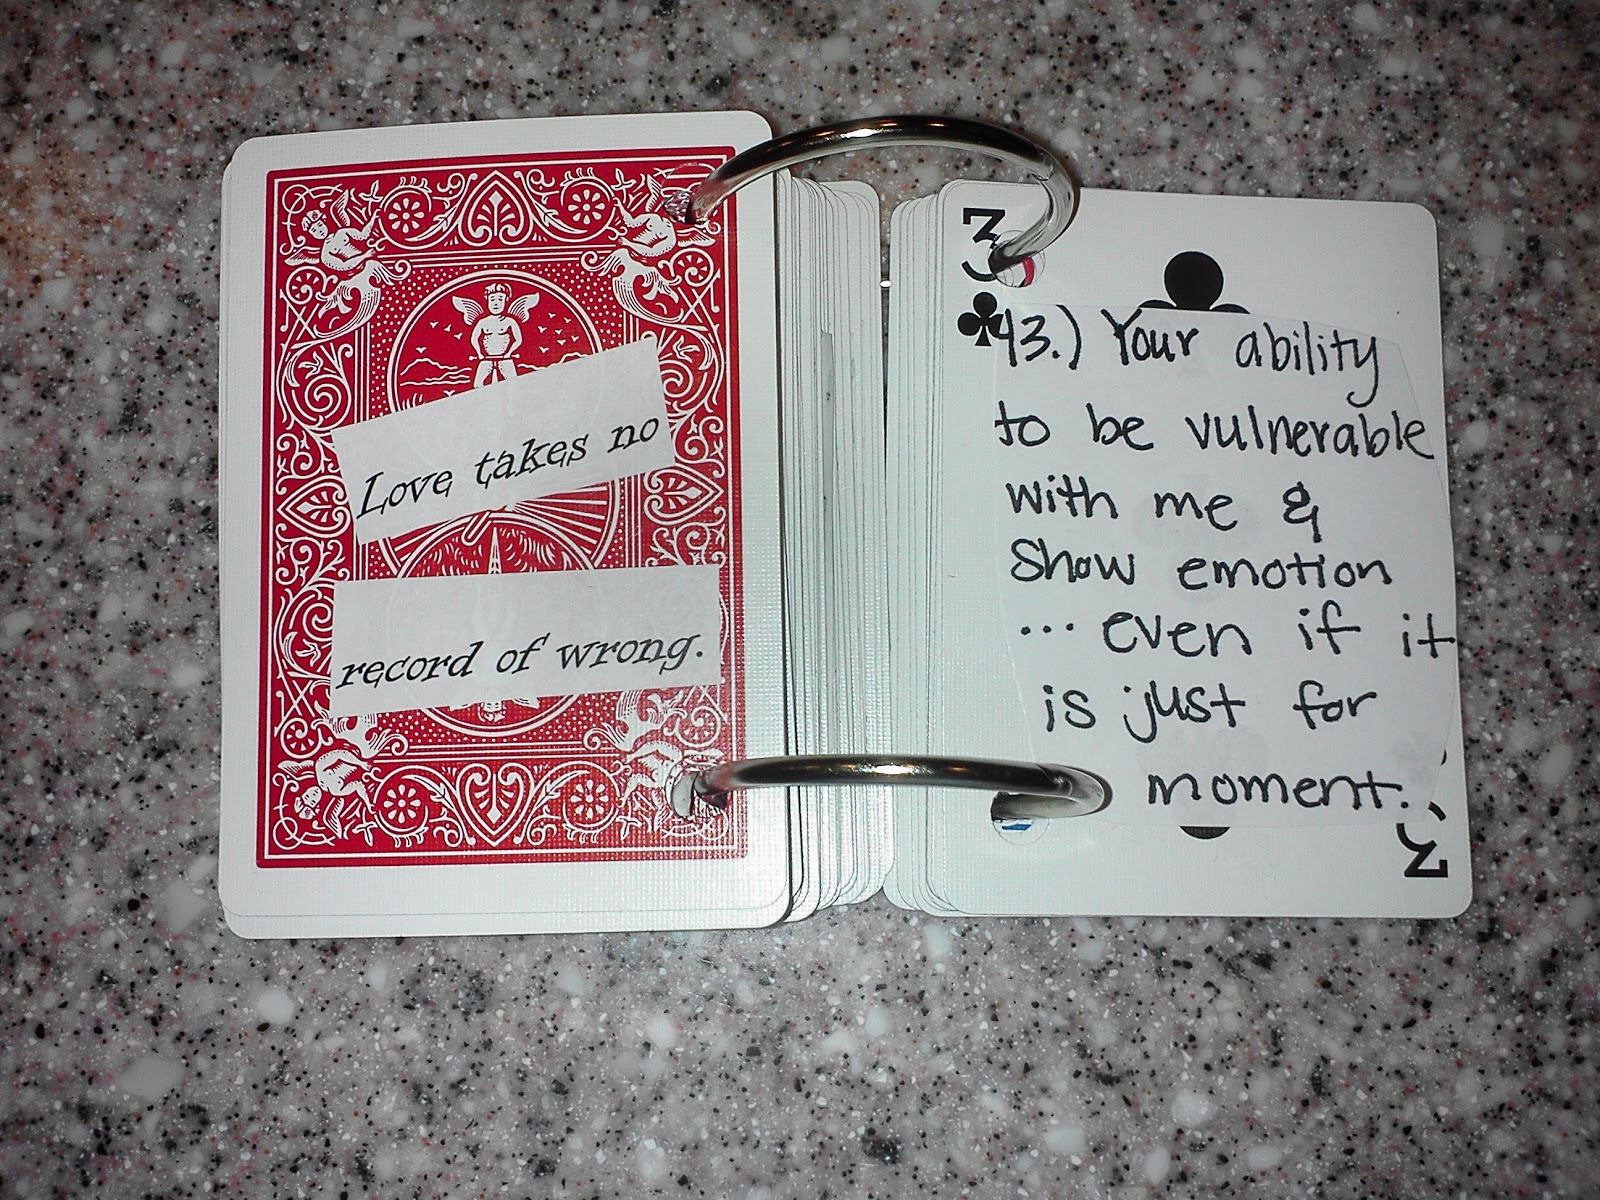 Love takes no
record of wrong.
3
43.) Your ability
to be vulnerable
with me &
show emotion
... even if it
is just for
moment.
3